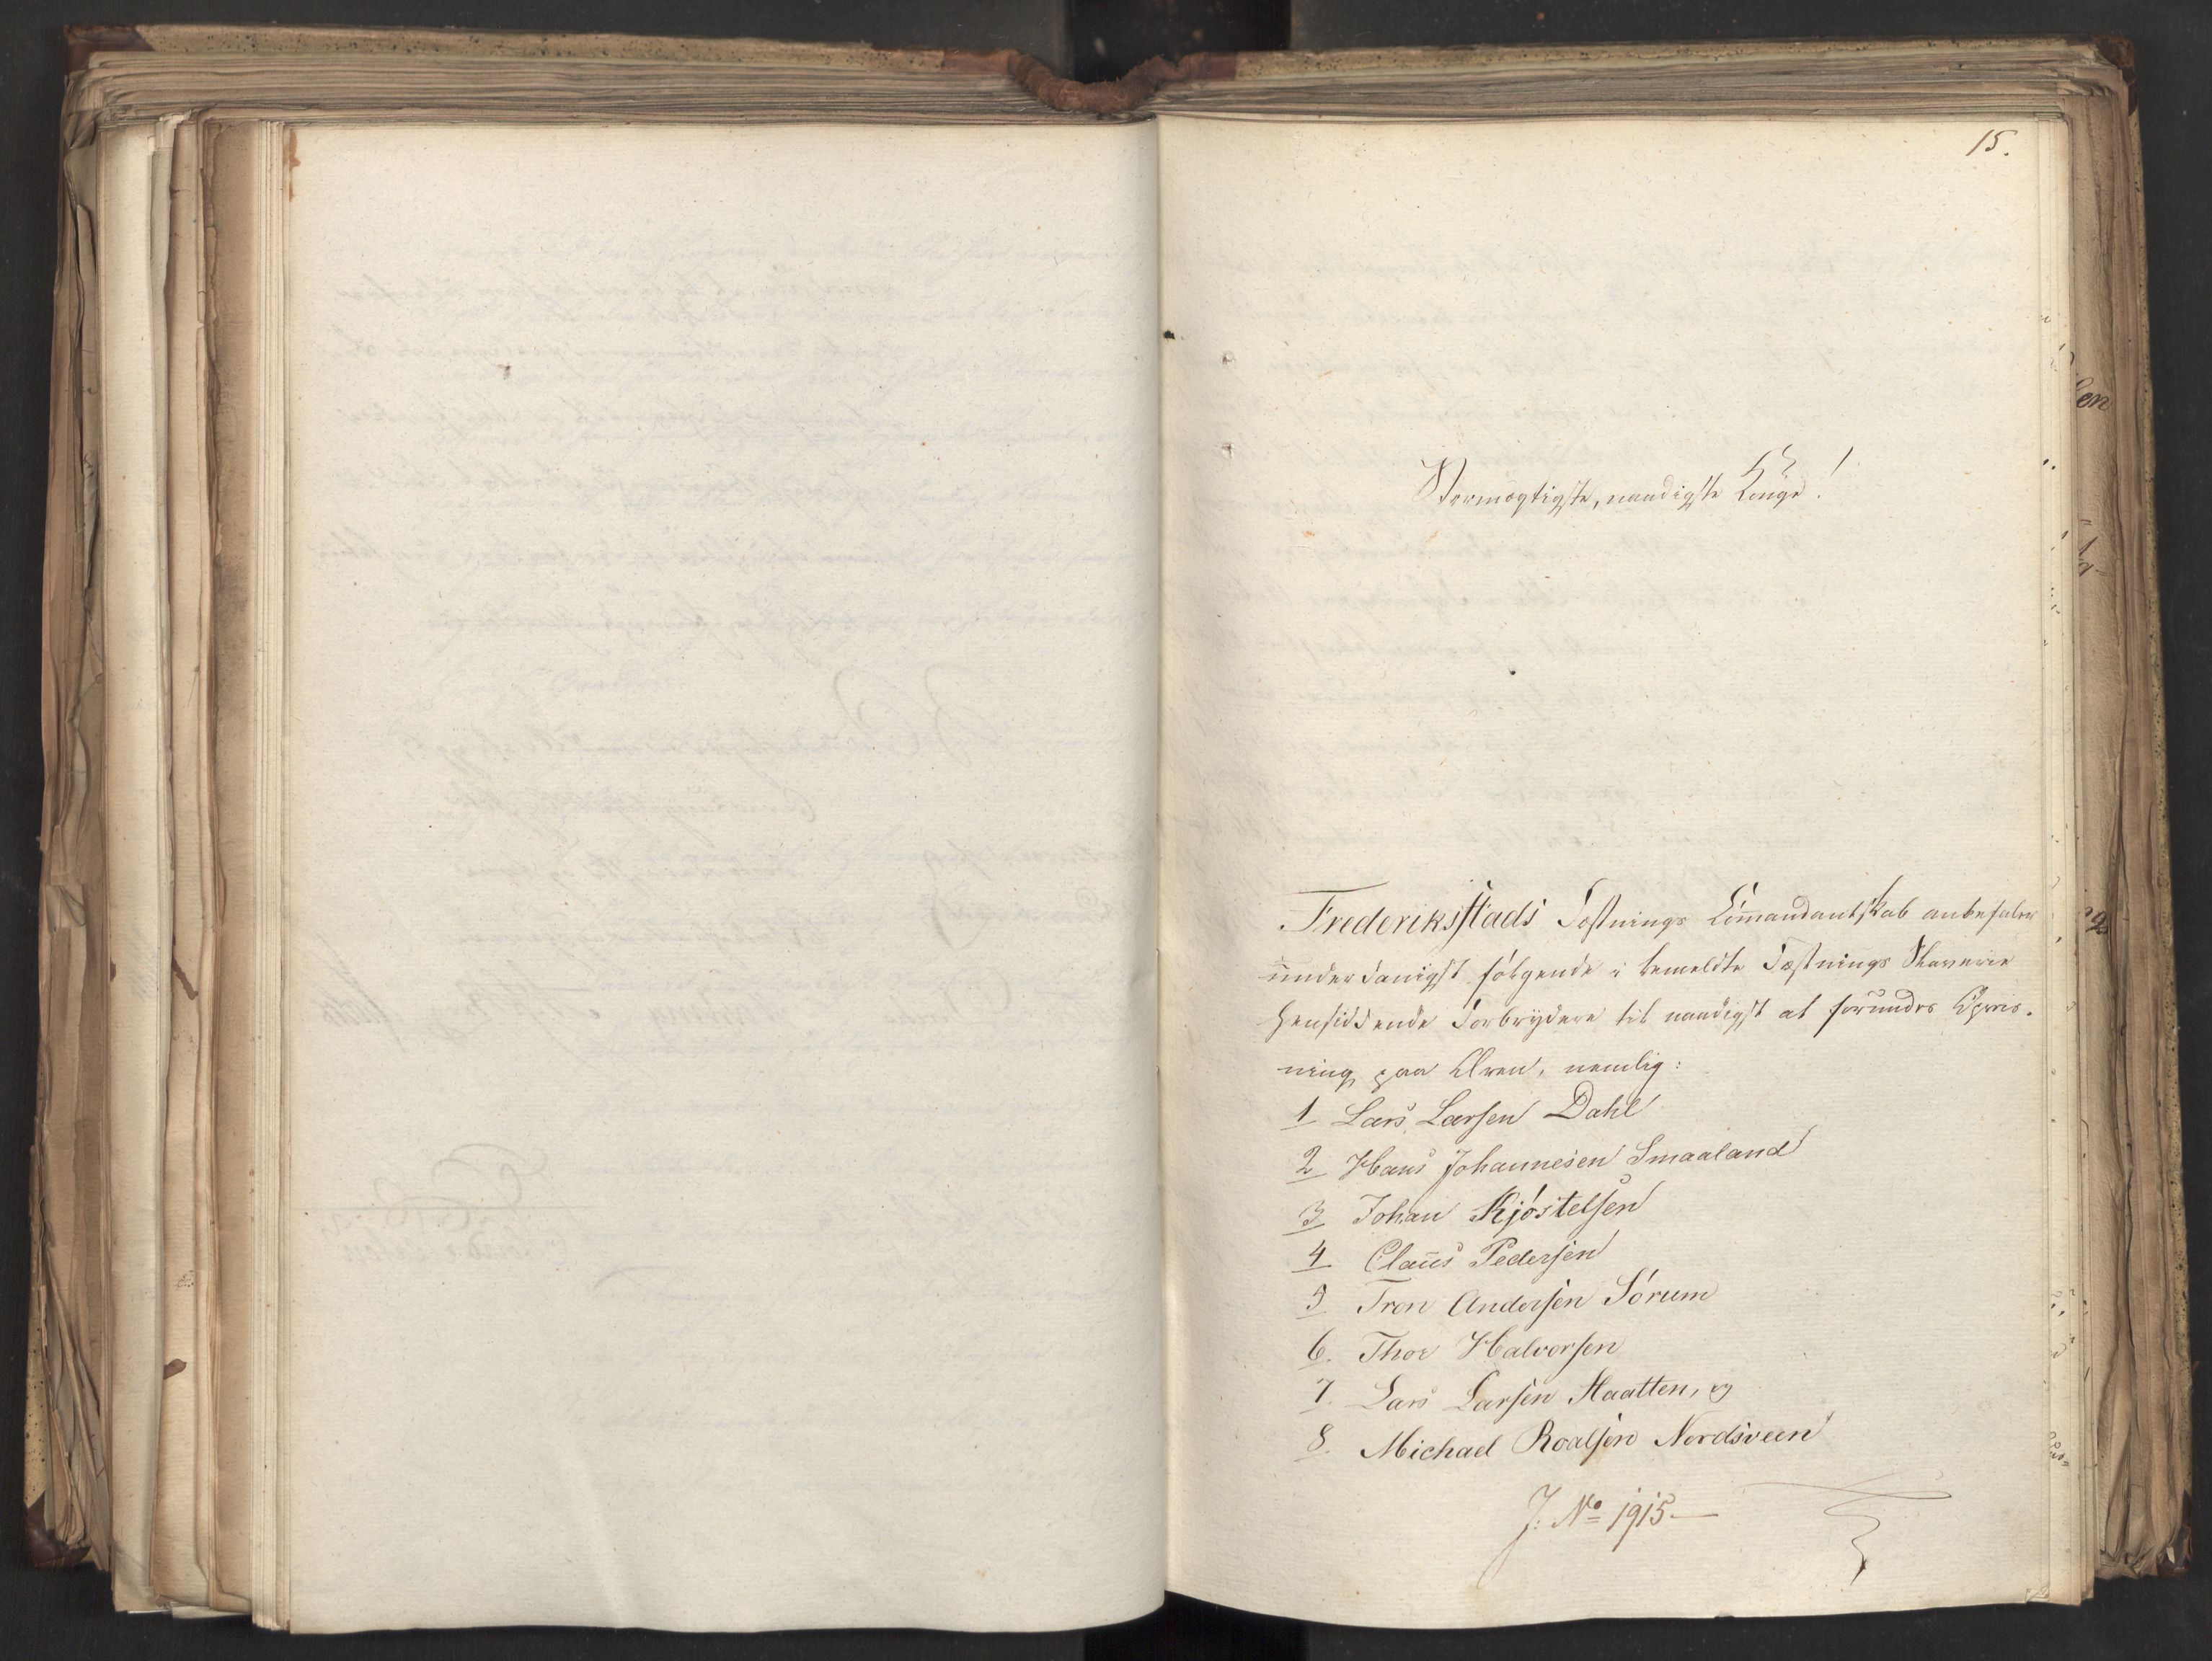 15.
Stormægtigste, naadigste Konge!
Frederiksstads Fæstnings Commandantskab anbefaler
underdanigst følgende i bemeldte Fæstnings Slaverie
hensiddende Forbrydere til naadigst at forundes Opreis-
ning paa Æren, nemlig:
1 Lars Larsen Dahl
2 Hans Johannesen Smaaland
3 Johan Kjøstelsen
4 Claus Pedersen
5 Tron Andersen Sørum
6. Thor Halvorsen
7. Lars Larsen Haatten, og
8. Michael Roalsen Nordsveen
J: No 1915